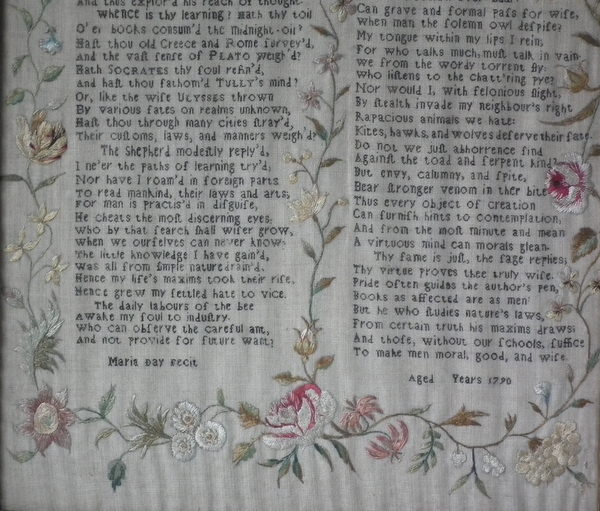 And thus explor'd his reach of thought.
WHENCE is thy learning? Hath thy toil
O'er books conſum'd the midnight-oil?
Haſt thou old Greece and Rome ſurvey'd,
And the vaſt ſenſe of PLATO weigh'd?
Hath SOCRATES thy ſoul refin'd,
And haſt thou fathom'd TULLY'S mind?
Or, like the wiſe ULYSSES thrown
By various fates on realms unknown,
Haſt thou through many cities ſtray'd,
Their cuſtoms, laws, and manners weigh'd?
The Shepherd modeſtly reply'd,
I ne'er the paths of learning try'd;
Nor have I roam'd in foreign parts
To read mankind, their laws and arts;
For man is practis'd in diſguiſe,
He cheats the moſt diſcerning eyes:
Who by that ſearch ſhall wiſer grow,
When we ourſelves can never know?
The little knowledge I have gain'd,
Was all from ſimple nature drain'd;
Hence my life's maxims took their riſe,
Hence grew my ſettled hate to vice.
The daily labours of the bee
Awake my ſoul to induſtry.
Who can obſerve the careful ant,
And not provide for future want?
Maria Day Fecit
Can grave and formal paſs for wiſe,
When man the ſolemn owl deſpiſe?
My tongue within my lips I rein;
For who talks much, muſt talk in vain.
We from the wordy torrent fly:
Who liſtens to the chatt'ring pye?
Nor would I, with felonious flight,
By ſtealth invade my neighbour's right
Rapacious animals we hate:
Kites, hawks, and wolves deſerve their fate.
Do not we juſt abhorrence find
Againſt the toad and ſerpent kind?
But envy, calumny, and ſpite,
Bear ſtronger venom in ther bite
Thus every object of creation
Can furniſh hints to contemplation;
And from the moſt minute and mean
A virtuous mind can morals glean.
Thy fame is juſt, the ſage replies;
Thy virtue proves thee truly wiſe.
Pride often guides the author's pen,
Books as affected are as men:
But he who ſtudies nature's laws,
From certain truth his maxims draws;
And thoſe, without our ſchools, ſuffice
To make men moral, good, and wiſe
Aged Years 1790